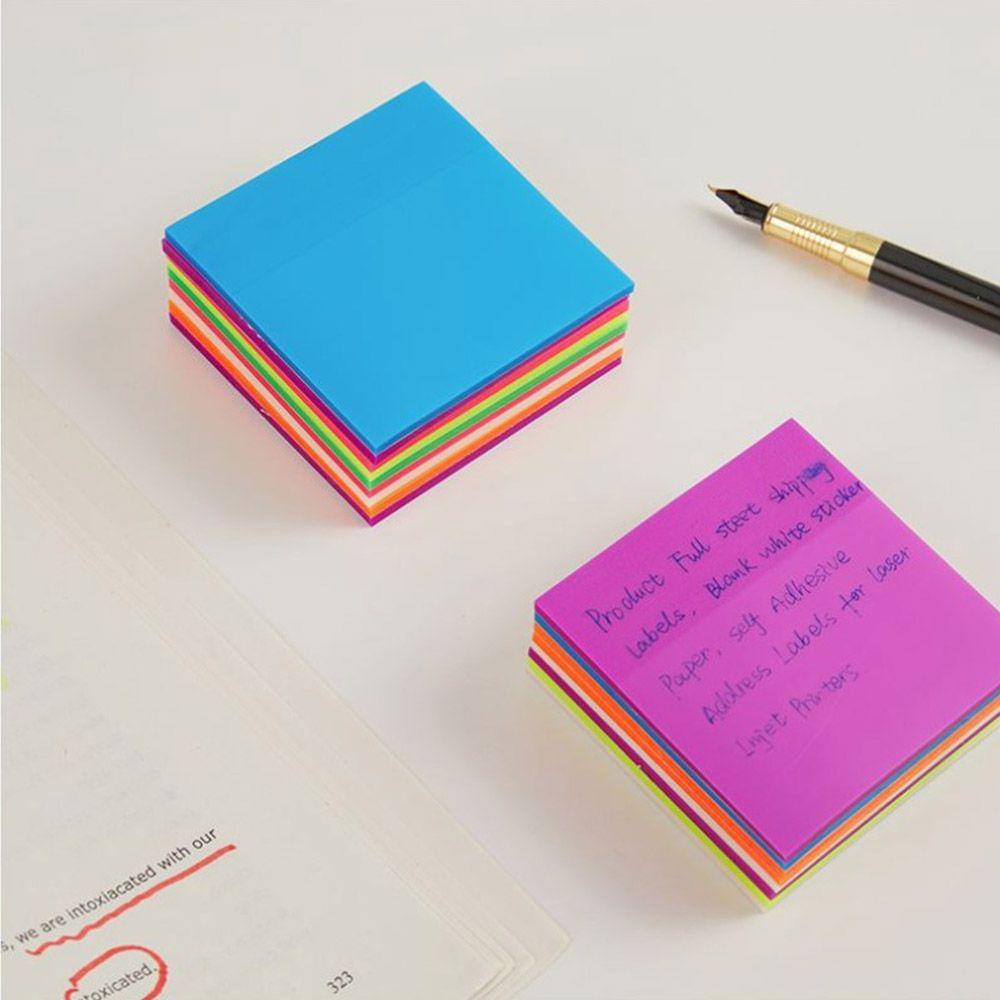 Product Full steet shipping
Labels, Blank white sticker
Paper, self Adhesive
Address Labels for Laser
Injet Printers
s, we are intoxiacated with our
toxicated.
323